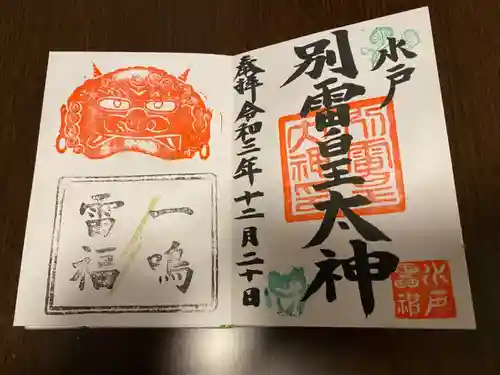 水戸
別雷皇太神
奉拝 令和三年十二月二十日
一鳴
雷福
別雷皇
太神
水戸
雷神